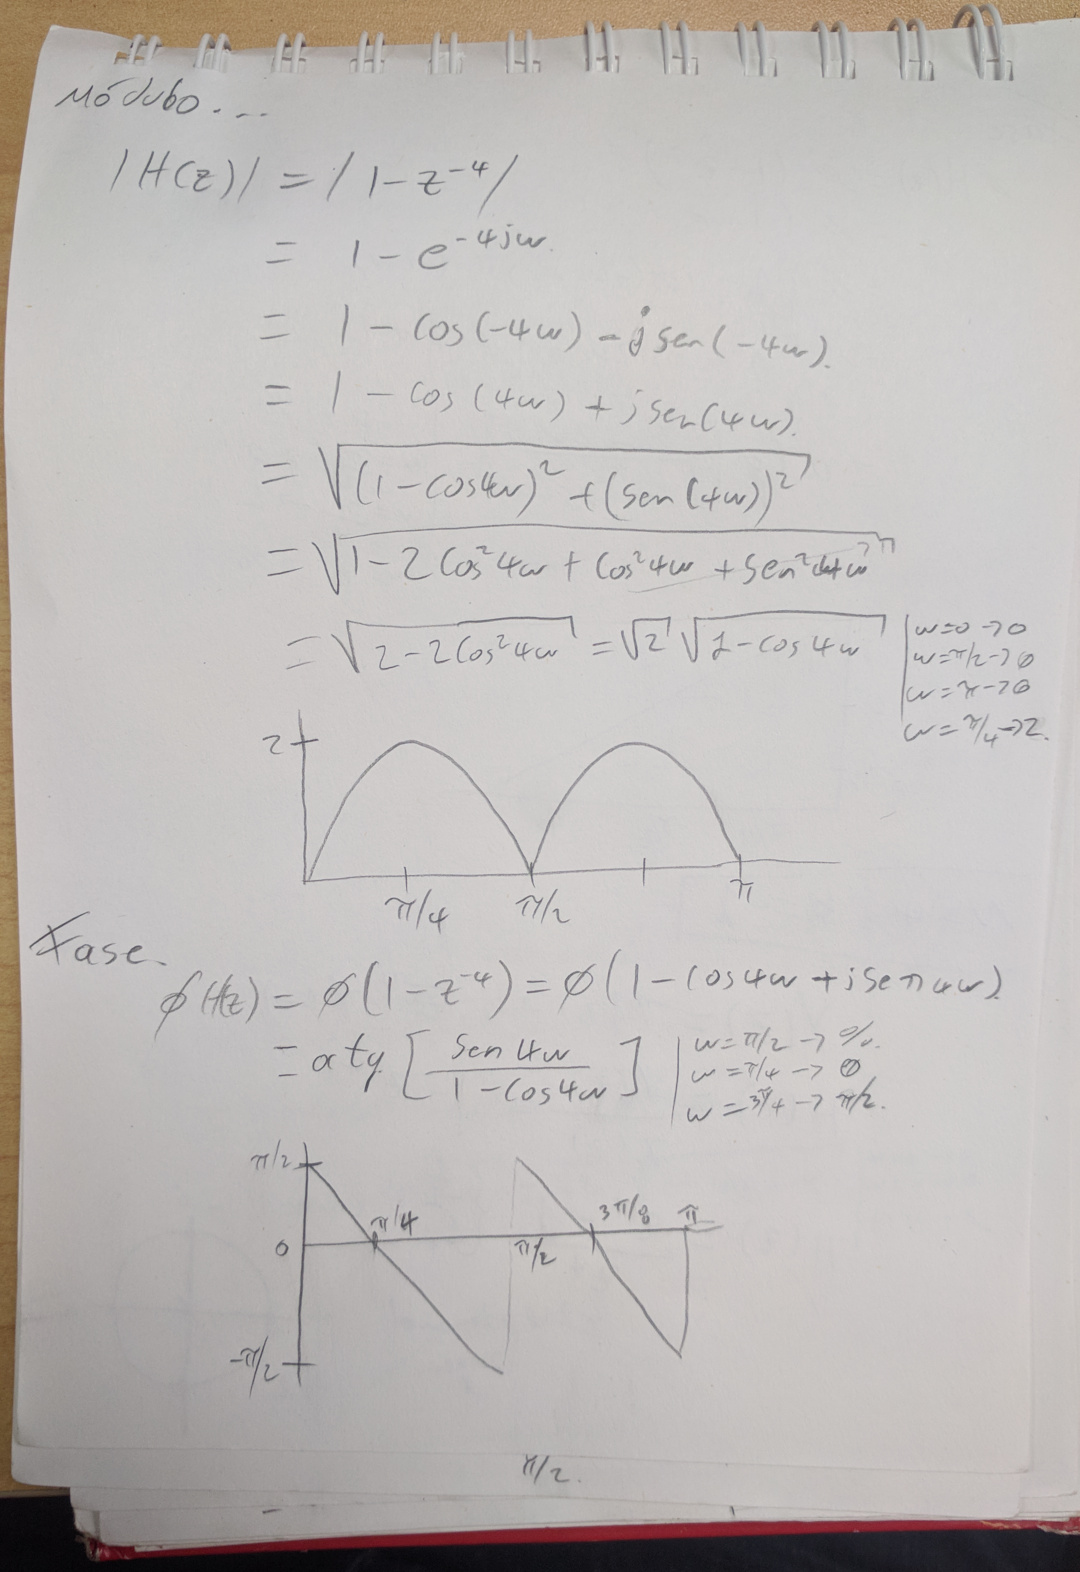 Módulo...
|H(z)| = |1-z^-4|
= 1 - e^-4jw.
= 1 - cos(-4w) - j sen(-4w).
= 1 - cos(4w) + j sen(4w).
= √((1-cos4w)^2 + (sen(4w))^2)
= √(1-2cos^2 4w + cos^2 4w + sen^2 4w)
= √(2-2cos^2 4w) = √2 √(1-cos4w)
w=0 → 0
w=π/2 → 0
w=π → 0
w=π/4 → 2.
2
π/4 π/2 π
Fase.
ϕH(z) = ϕ(1-z^-4) = ϕ(1-cos4w + jsen4w)
= atg [sen4w / 1-cos4w]
w=π/2 → %.
w=π/4 → 0
w=3π/4 → π/2.
π/2
0 π/4 π/2 3π/8 π
-π/2
π/2.